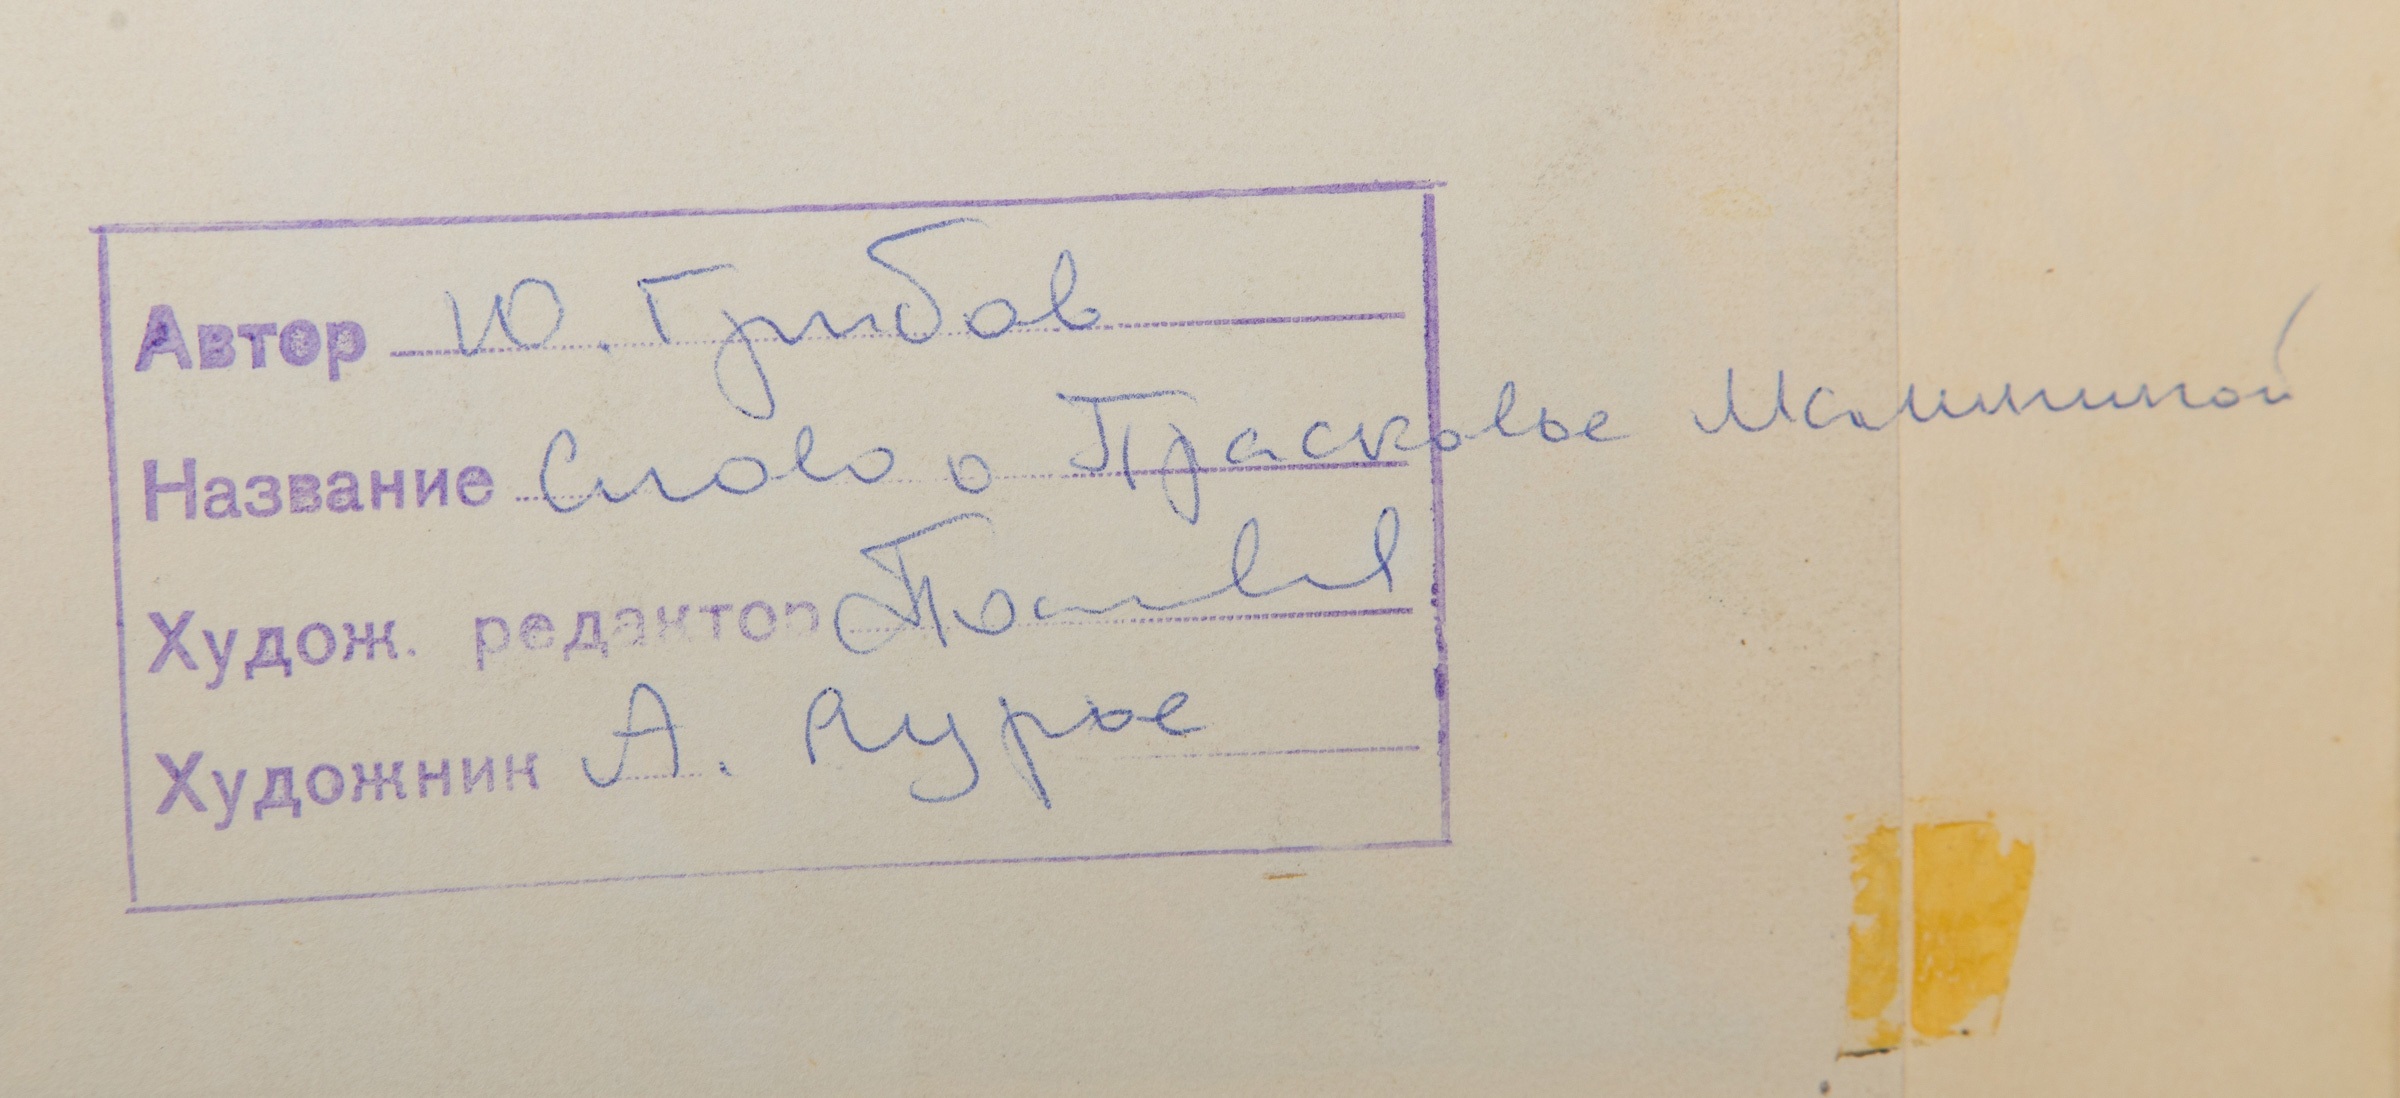 Автор Ю. Грибов
Название Слово о Прасковье Малининой
Худож. редактор
Художник А. Яурье